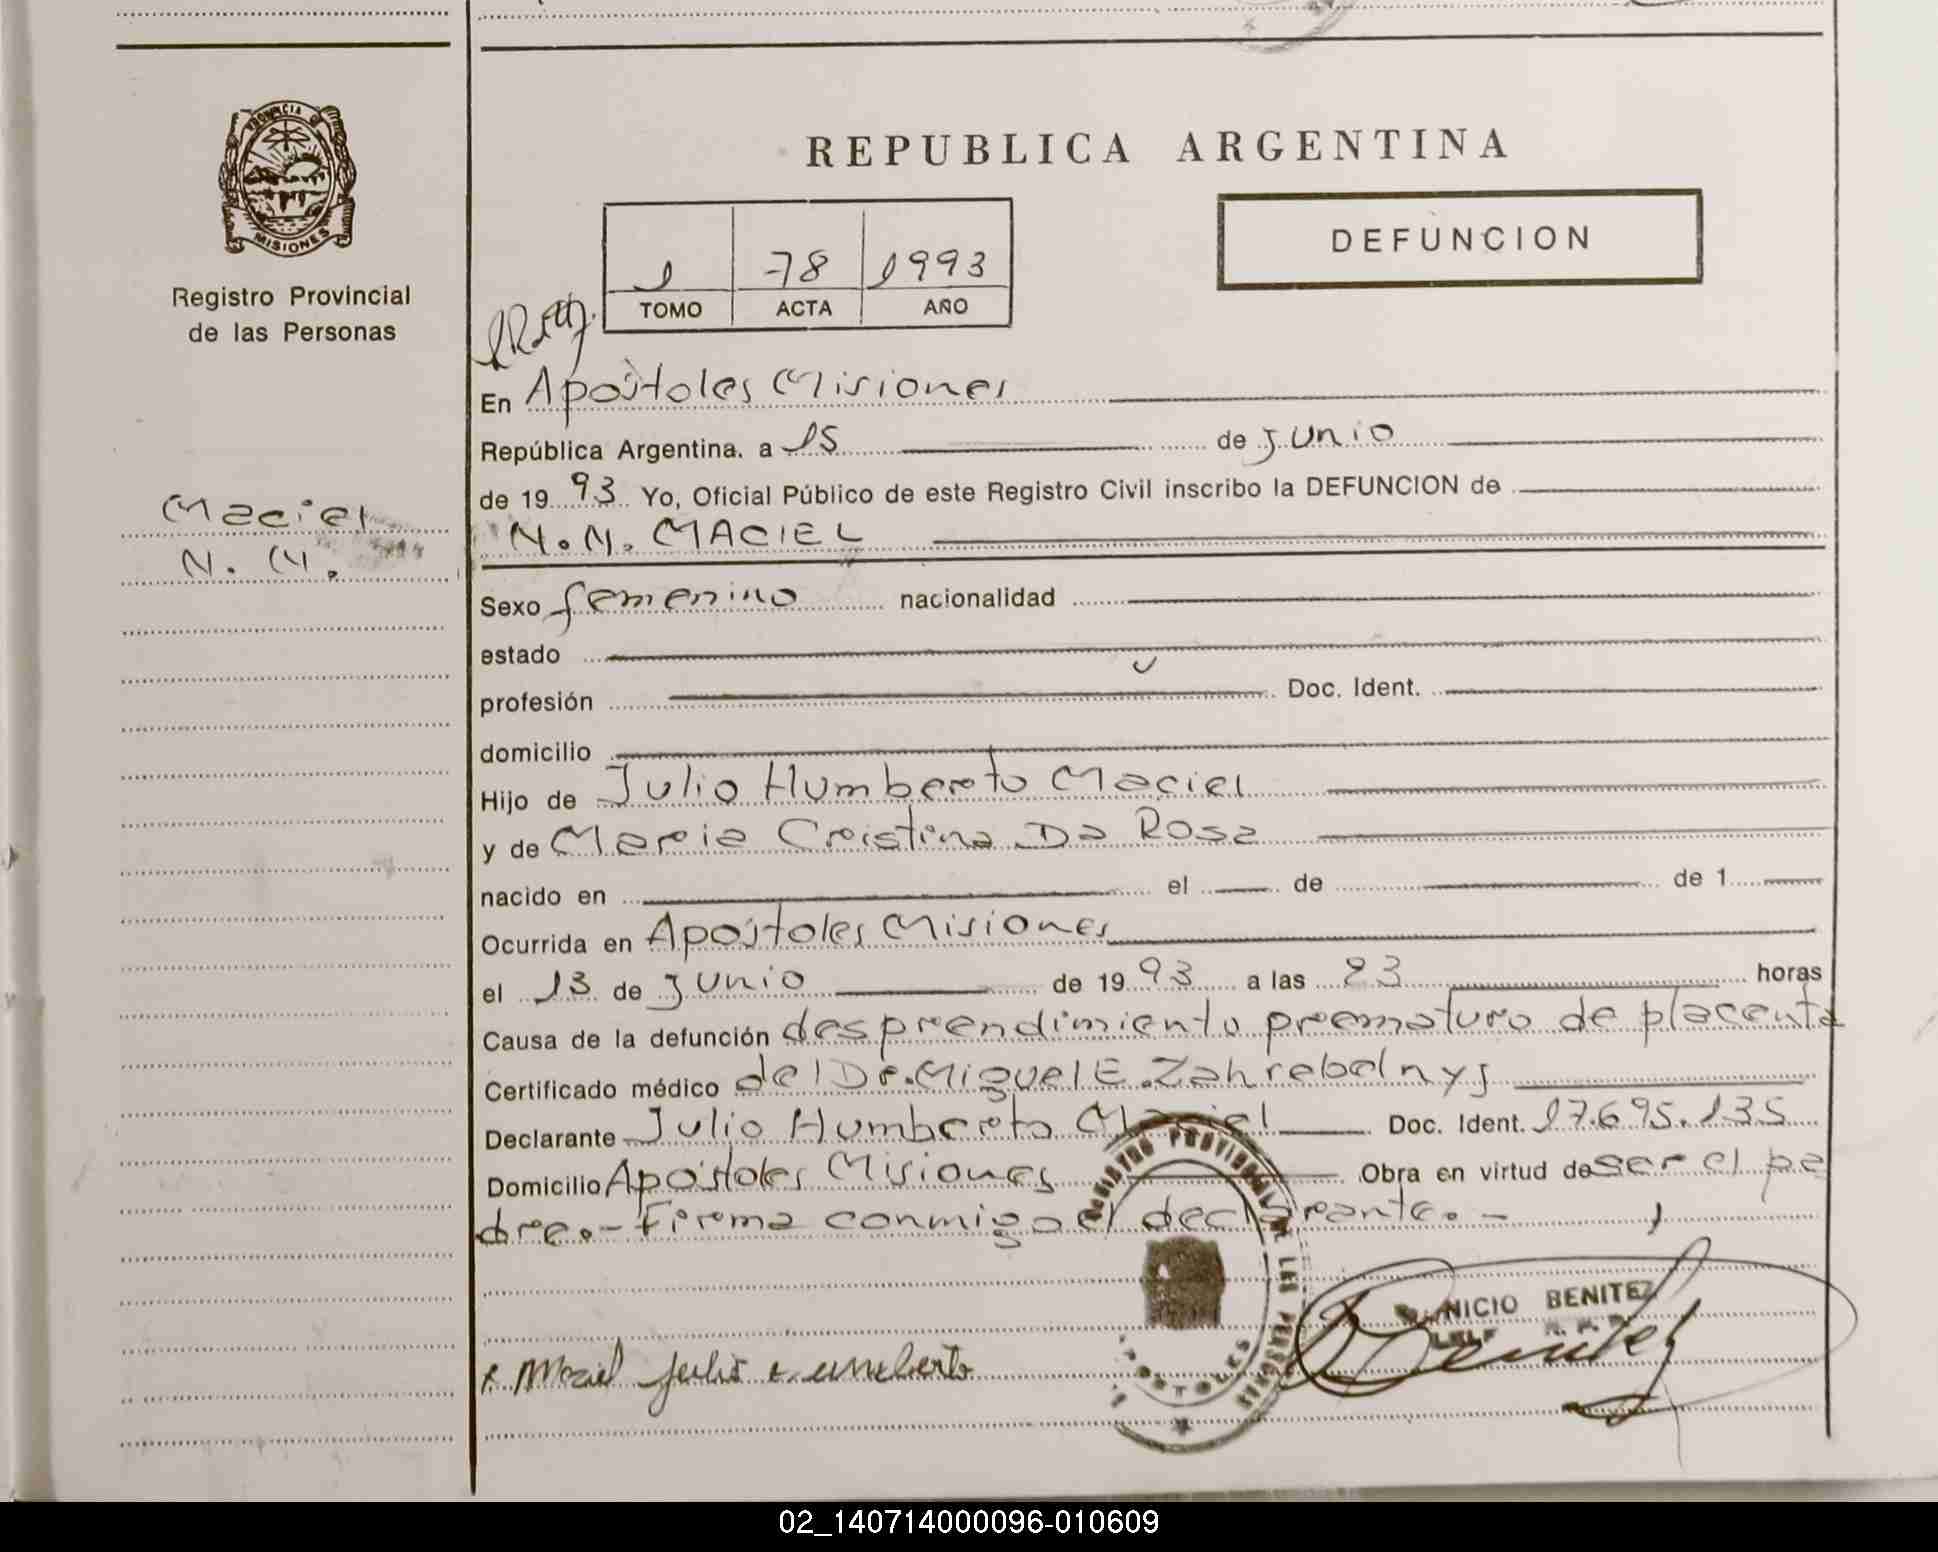 PROVINCIA D
MISIONES
Registro Provincial
de las Personas
Maciel
N. N.
REPUBLICA ARGENTINA
DEFUNCION
1 78 1993
TOMO ACTA AÑO
En Apóstoles Misiones
República Argentina. a 15 de Junio
de 19 93 Yo, Oficial Público de este Registro Civil inscribo la DEFUNCION de
N.N. MACIEL
Sexo femenino nacionalidad
estado
profesión Doc. Ident.
domicilio
Hijo de Julio Humberto Maciel
y de Maria Cristina Da Rosa
nacido en el de de 1
Ocurrida en Apóstoles Misiones
el 13 de Junio de 19 93 a las 23 horas
Causa de la defunción desprendimiento prematuro de placenta
Certificado médico del Dr. Miguel E. Zahrebelnyj
Declarante Julio Humberto Maciel Doc. Ident. 17.695.135
Domicilio Apóstoles Misiones Obra en virtud de ser el pa
dre.- Firma conmigo el declarante.-
REGISTRO PROVINCIAL DE LAS PERSONAS
APOSTOLES
NICIO BENITEZ
x Maciel Julio Humberto
Benitez
02_140714000096-010609